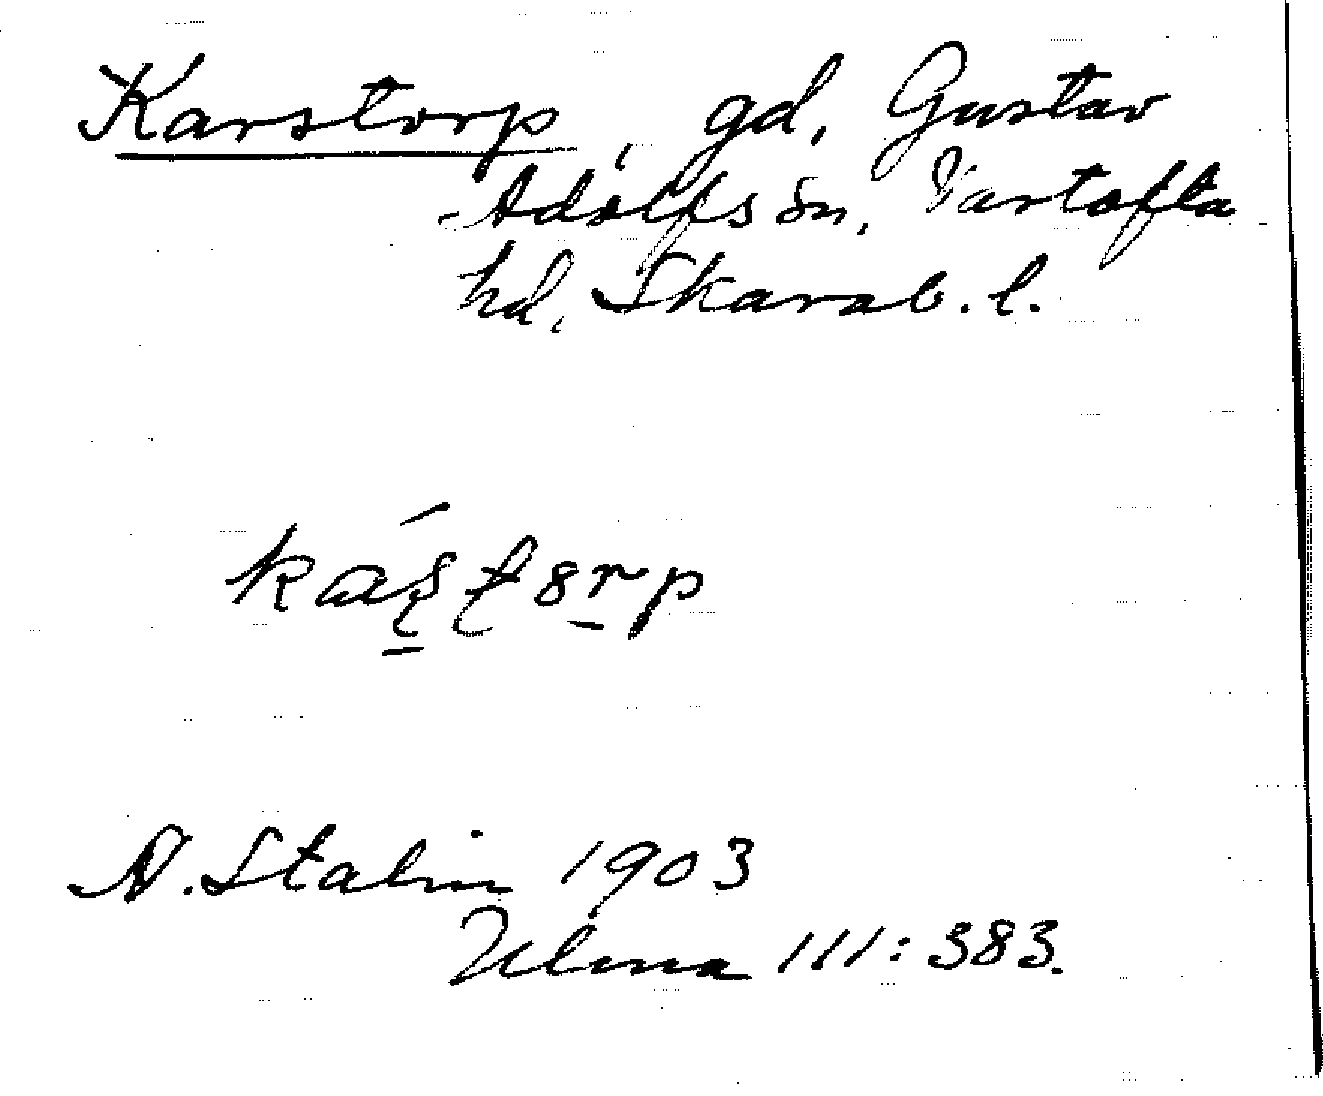 Karstorp, gd, Gustav
Adolfs sn, Vartofta
hd, Skarab. l.
N. Stalin 1903
Ulma 111:383.